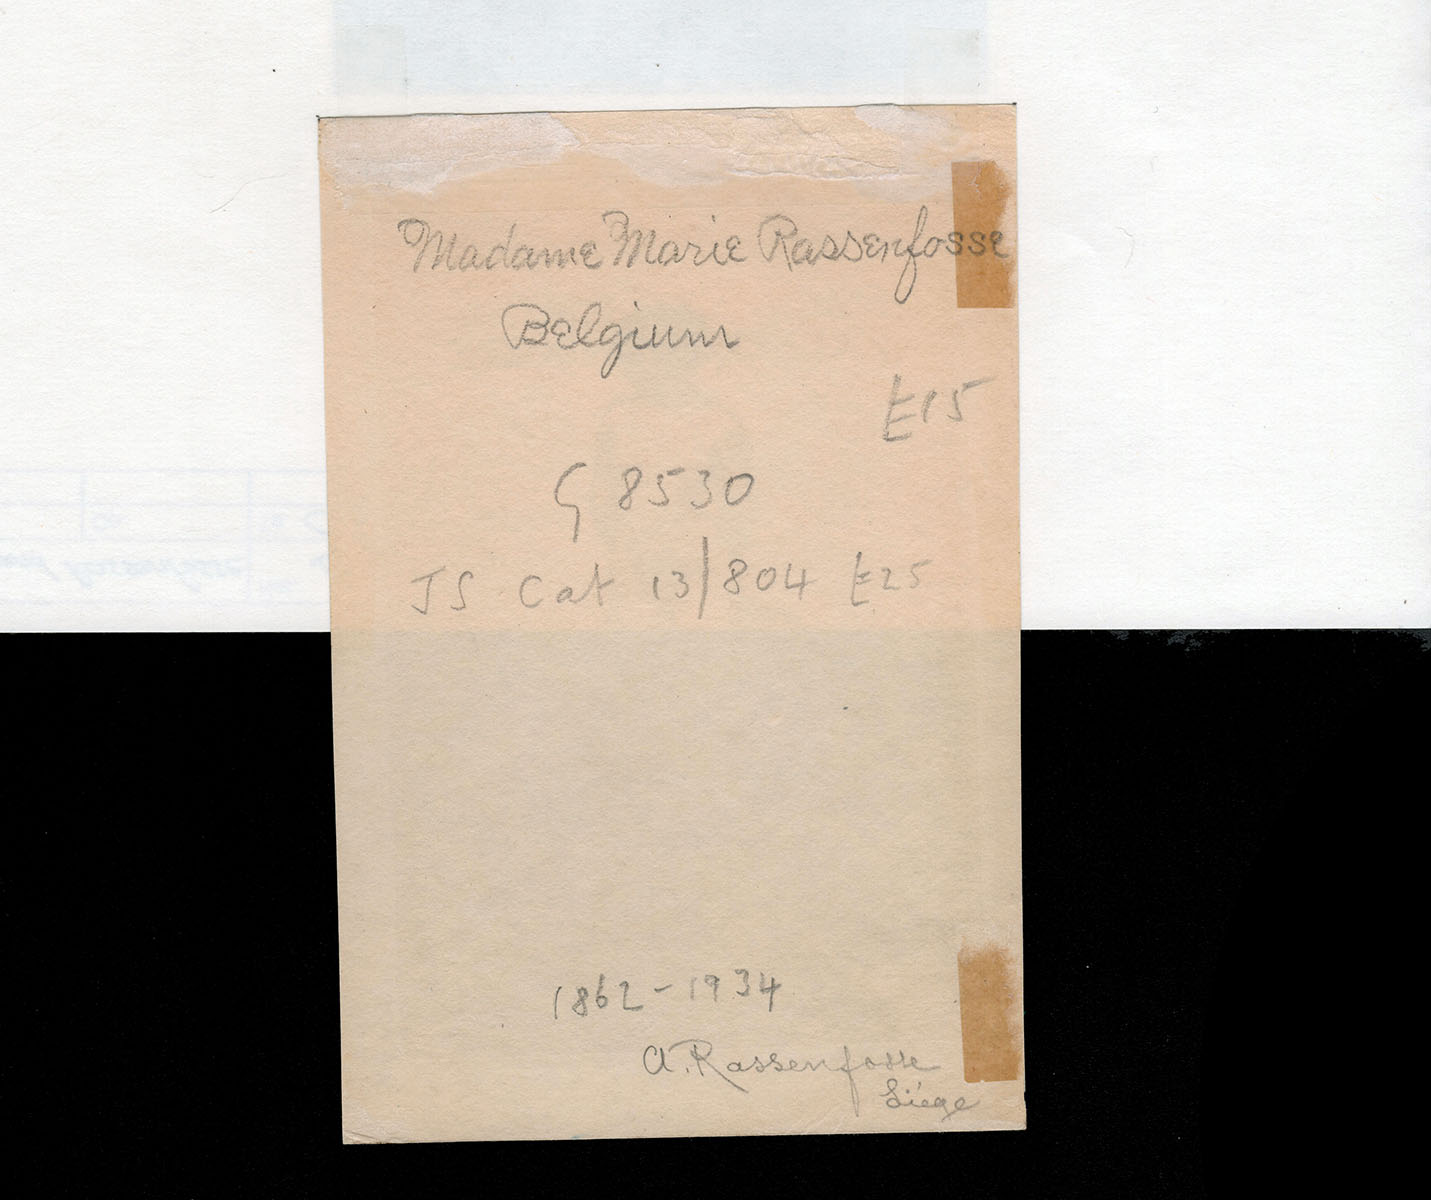 Madame Marie Rassenfosse
Belgium
£15
G 8530
JS Cat 13/804 £25
1862-1934
A. Rassenfosse
Liége